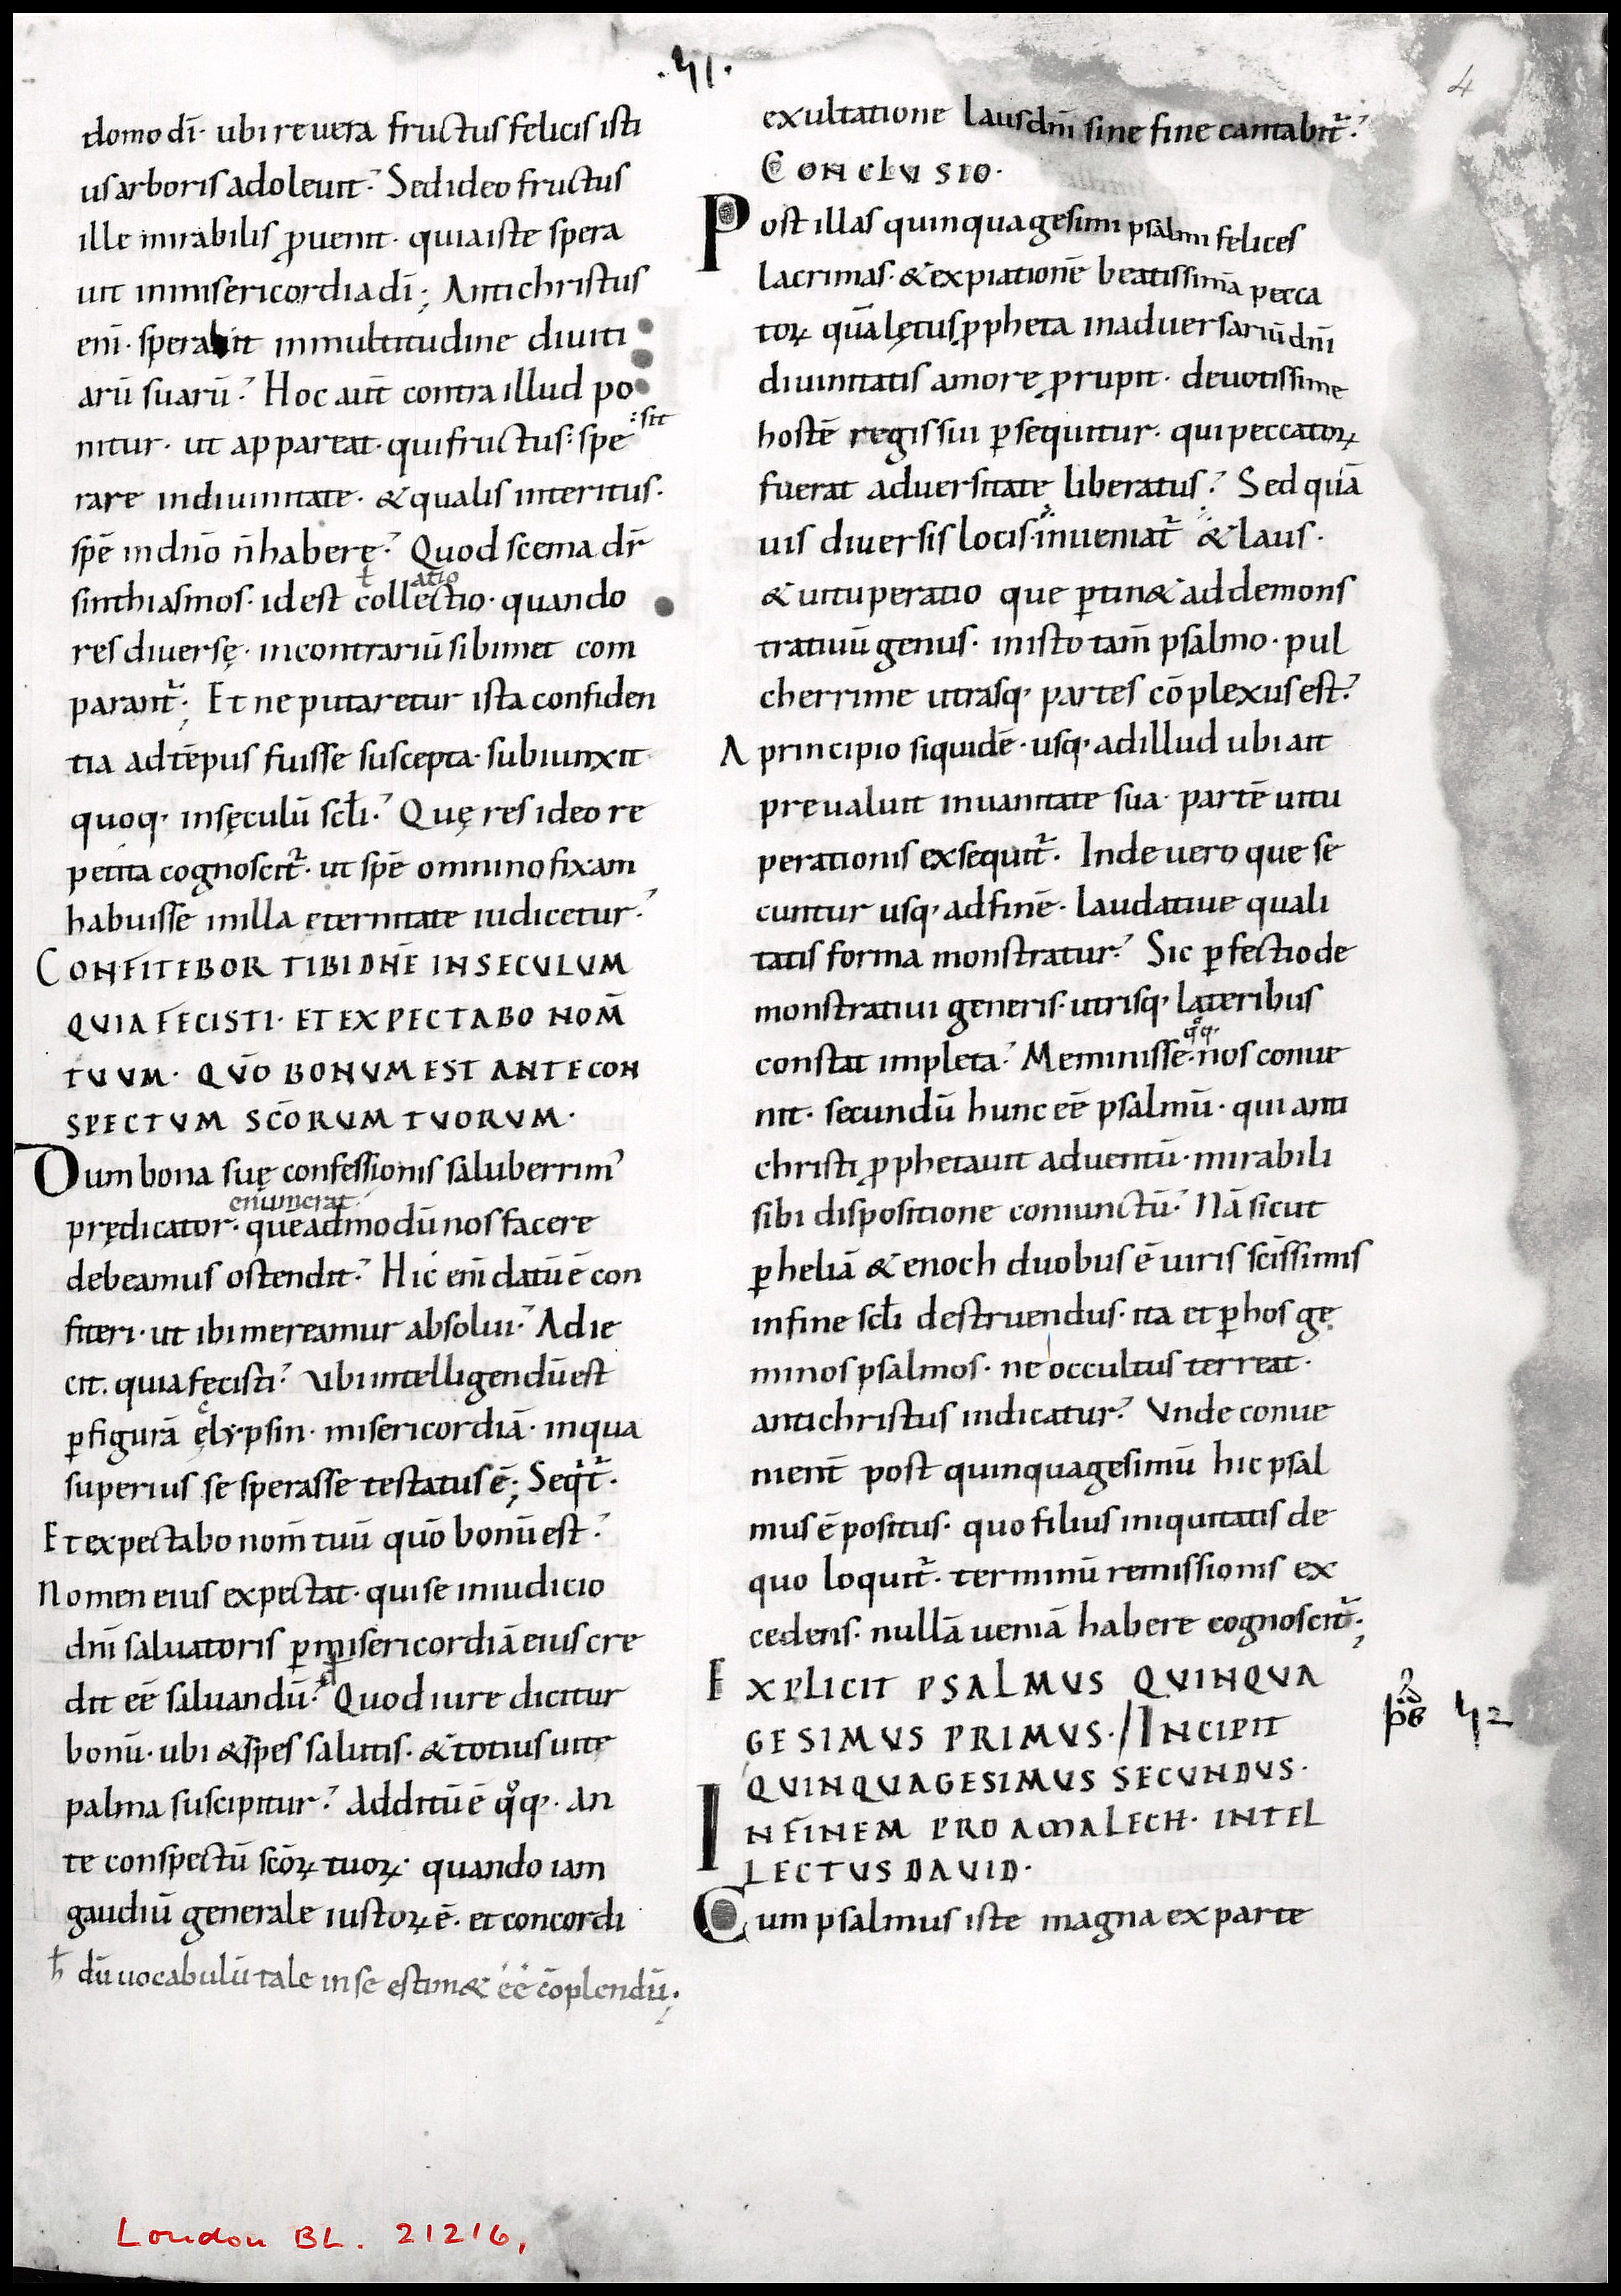 .51.
4
domo dī· ubi revera fructus felicis isti
us arboris adoleuit. Sed ideo fructus
ille mirabilis ꝓuenit· quia iste spera
uit in misericordia dī; Antichristus
enī· sperabit in multitudine diuiti
arū suarū. Hoc aut̄ contra illud po
nitur· ut appareat· qui fructus: spe :sit
rare in diuinitate· & qualis interitus·
spē in dn̄o n̄ habere. Quod scema dr̄
sinthiasmos· id est collectio· quando
ł atio
res diuersę· in contrariū sibimet com
parant᷑; Et ne putaretur ista confiden
tia ad tēpus fuisse suscepta· subiunxit
quoq· in sęculū scłi. Quę res ideo re
petita cognoscit᷑· ut spē omnino fixam
habuisse in illa ęternitate iudicetur.
CONFITEBOR TIBI DN̄E IN SECULUM
QUIA FECISTI· ET EXPECTABO NOM̄
TUUM· QUŌ BONUM EST ANTE CON
SPECTUM SC̄ORUM TUORUM·
Dum bona suę confessionis saluberrim᾿
enumerat
prędicator· queadmodū nos facere
debeamus ostendit. Hic enī datū ē con
fiteri· ut ibi mereamur absolui. Adie
cit. quia fęcisti. Ubi intelligendū est
ꝑ figurā ęlypsin· misericordiā· in qua
superius se sperasse testatus ē; Seqt᷑·
Et expectabo nom̄ tuū quō bonū est.
Nomen eius expectat· qui se in iudicio
dn̄i saluatoris ꝑ misericordiā eius cre
dit eē saluandū. Quod iure dicitur
bonū· ubi & spes salutis· & totius uitę
palma suscipitur. Additū ē qͦq· an
te conspectū sc̄oꝝ tuoꝝ· quando iam
gaudiū generale iustoꝝ ē· et concordi
ħ dū uocabulū tale in se estim& eē cōplendū;
exultatione laus dn̄i sine fine cantabit᷑.
CONCLUSIO·
Post illas quinquagesimi psalmi felices
lacrimas· & expiationē beatissimā pecca
toꝝ quā lętus ꝓpheta in aduersariū dn̄i
diuinitatis amore ꝓrupit· deuotissime
hostē regis sui ꝑsequitur· qui peccatoꝝ
fuerat aduersitate liberatus. Sed quā
uis diuersis locis· inueniat᷑ & laus·
& uituperatio que ꝑtin& ad demons
tratiuū genus· in isto tam̄ psalmo· pul
cherrime utrasq· partes cōplexus est.
A principio siquidē· usq· ad illud ubi ait
preualuit in uanitate sua· partē uitu
perationis exsequit᷑. Inde uero que se
cuntur usq· ad finē· laudatiue quali
tatis forma monstratur. Sic ꝑfectio de
monstratiui generis· utrisq· lateribus
constat impleta. Meminisse· nos conue
qͦq·
nit· secundū hunc eē psalmū· qui anti
christi ꝓphetauit aduentū· mirabili
sibi dispositione coniunctū. Nā sicut
ꝑ heliā & enoch duobus ē uiris sc̄issimis
in fine scłi destruendus· ita et ꝑ hos ge
minos psalmos· ne occultus terreat·
antichristus indicatur. Unde conue
nient̄ post quinquagesimū hic psal
mus ē positus· quo filius iniquitatis de
quo loquit᷑· terminū remissionis ex
cedens· nullā ueniā habere cognoscit᷑;
EXPLICIT PSALMUS QUINQUA
GESIMUS PRIMUS·/INCIPIT
QUINQUAGESIMUS SECUNDUS·
IN FINEM PRO AMALECH· INTEL
LECTUS DAVID·
Cum psalmus iste magna ex parte
52
London BL. 21216,